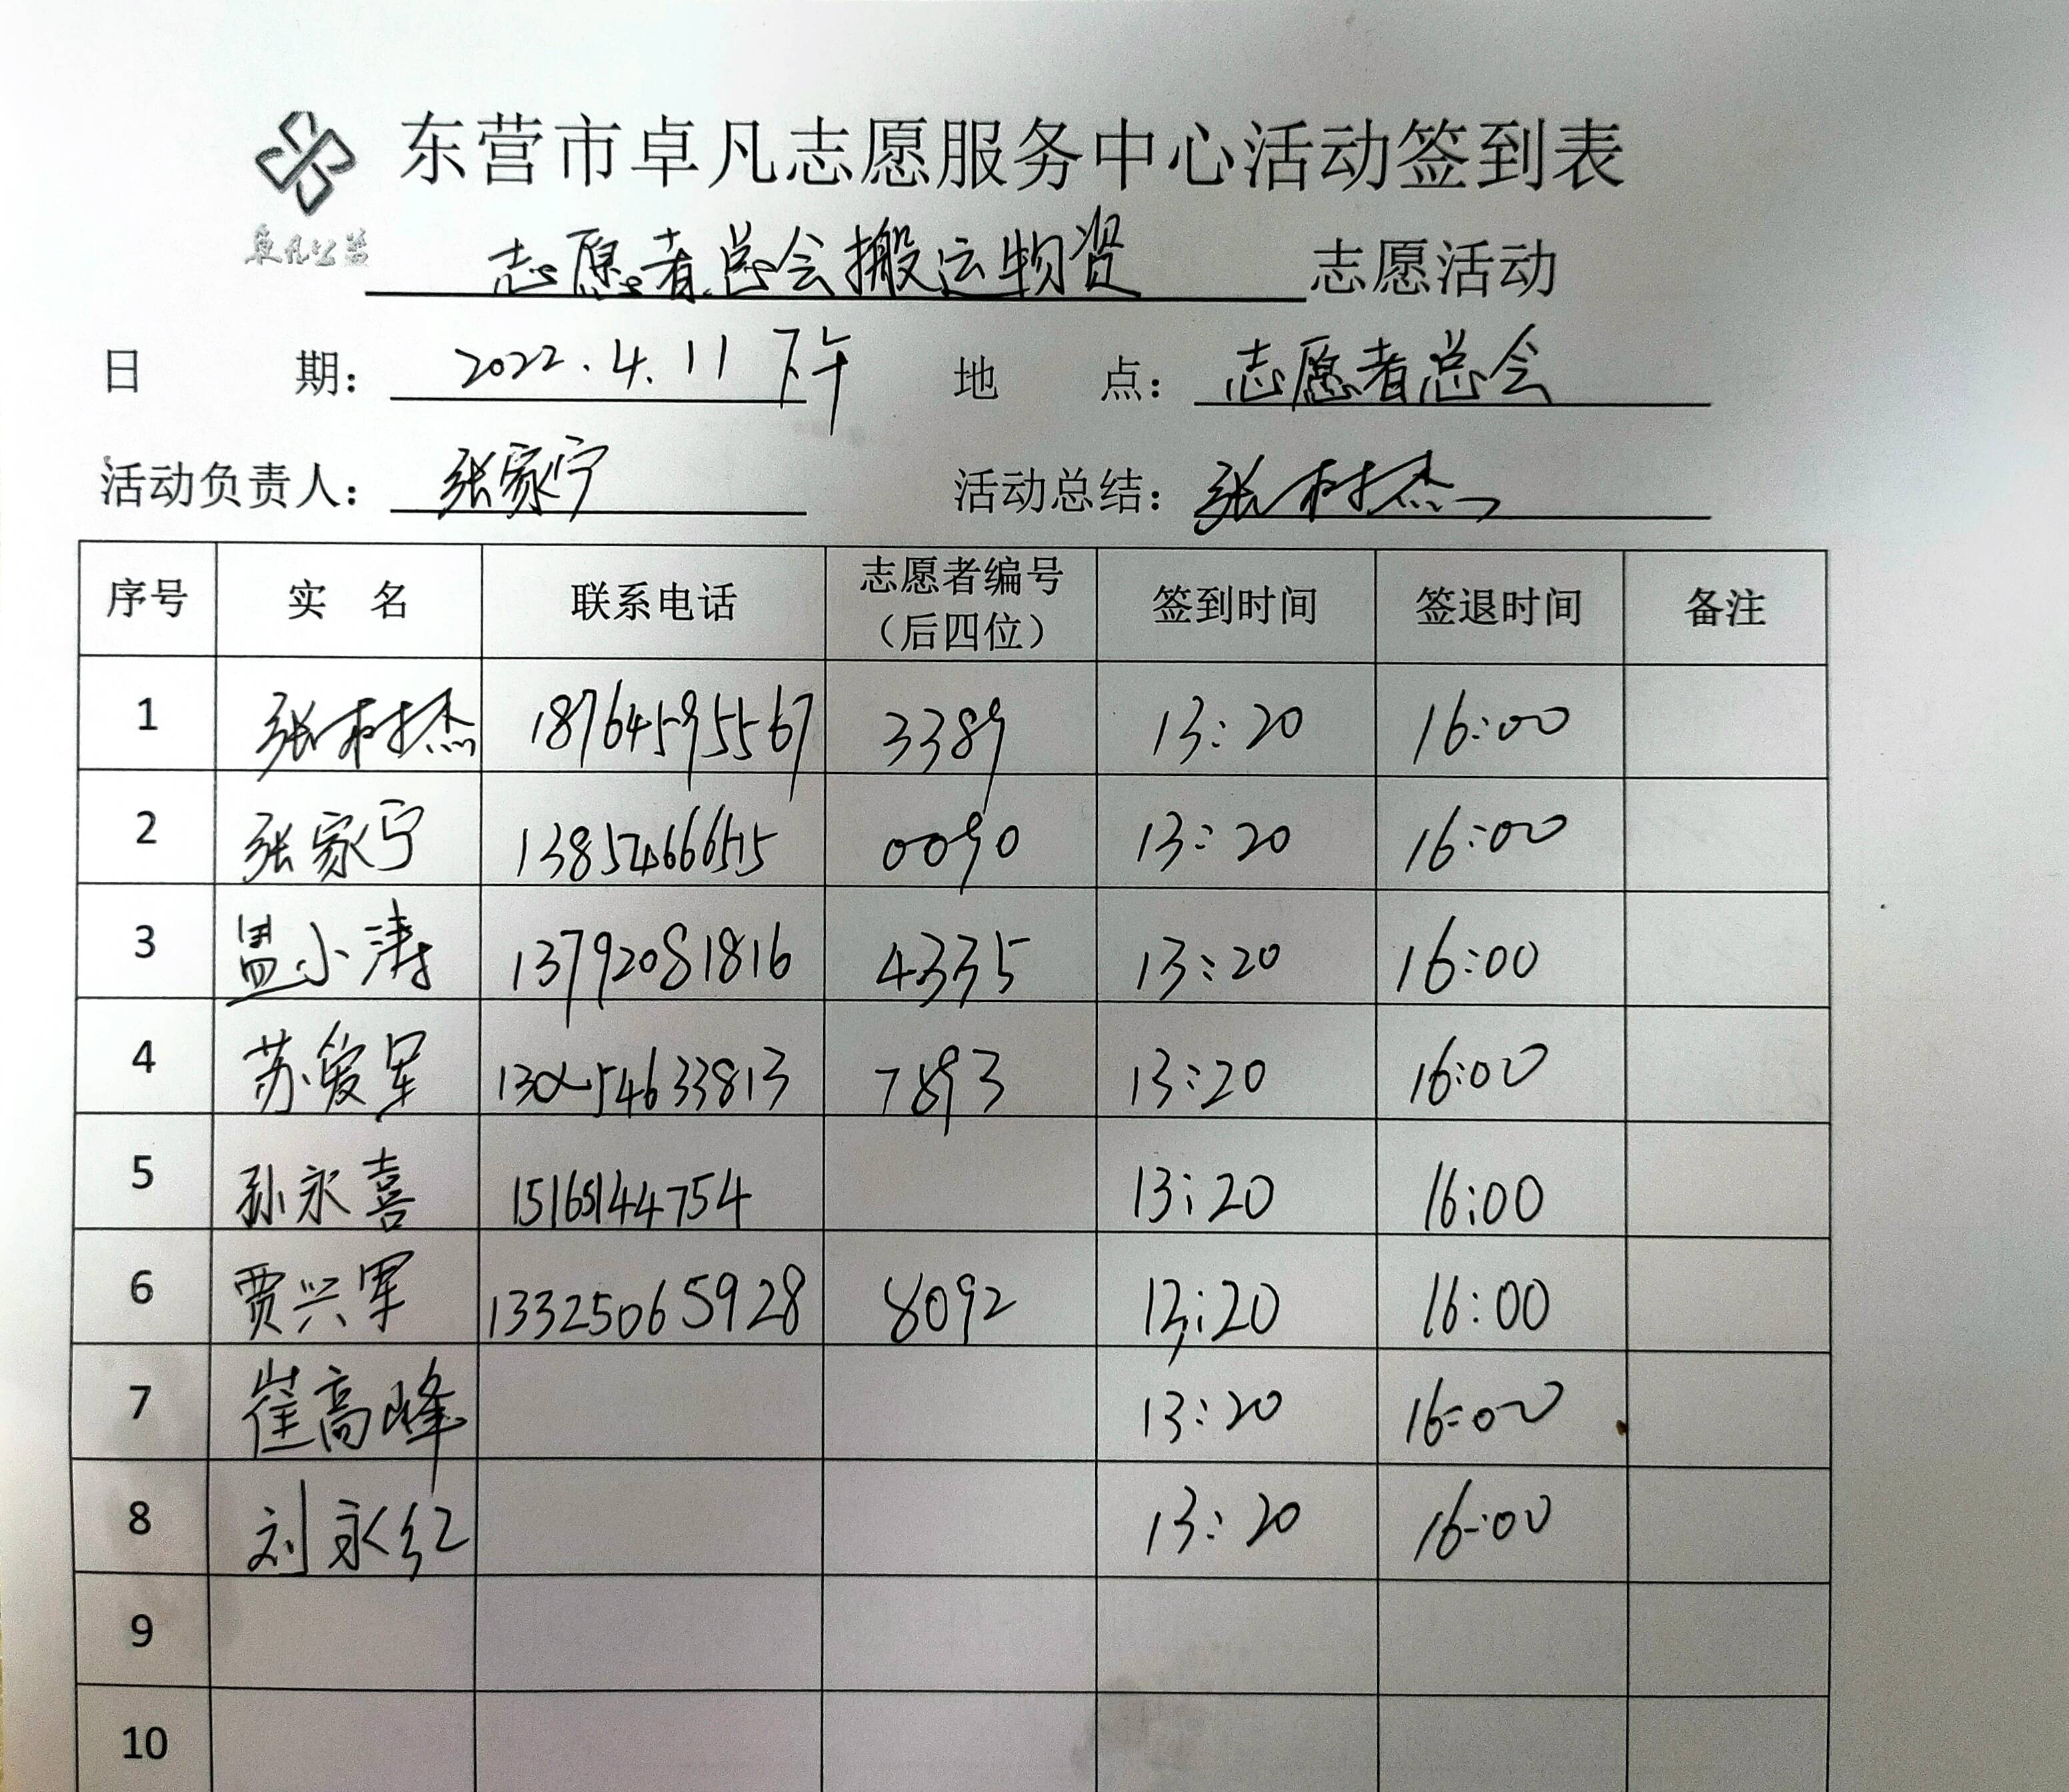 东营市卓凡志愿服务中心活动签到表
卓凡公益
志愿者总会搬运物资 志愿活动
日 期： 2022.4.11 下午 地 点： 志愿者总会
活动负责人： 张家宁 活动总结： 张树杰
序号 实 名 联系电话 志愿者编号（后四位） 签到时间 签退时间 备注
1 张树杰 18764595567 3389 13:20 16:00
2 张家宁 0090 13:20 16:00
3 小涛 13792081816 4335 13:20 16:00
4 苏爱军 7893 13:20 16:00
5 孙永喜 15165144754 13:20 16:00
6 贾兴军 13325065928 8092 13:20 16:00
7 崔高峰 13:20 16:00
8 刘永红 13:20 16:00
9
10